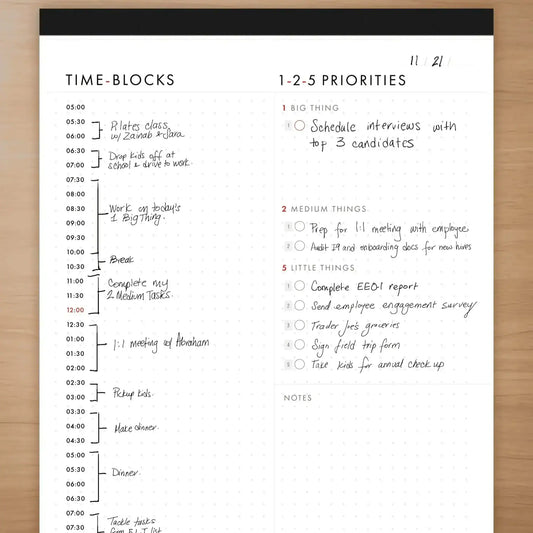 11 / 21 /
TIME-BLOCKS
05:00
05:30
06:00
Pilates class
w/ Zainab & Sara
06:30
07:00
Drop kids off at
school & drive to work.
07:30
08:00
08:30
09:00
09:30
10:00
Work on today's
1 Big Thing.
10:30
Break
11:00
11:30
12:00
Complete my
2 Medium Tasks
12:30
01:00
01:30
02:00
1:1 meeting w/ Abraham
02:30
03:00
Pickup kids.
03:30
04:00
04:30
Make dinner.
05:00
05:30
06:00
06:30
Dinner.
07:00
07:30
Tackle tasks
from 5 L.T list
1-2-5 PRIORITIES
1 BIG THING
1 Schedule interviews with
top 3 candidates
2 MEDIUM THINGS
1 Prep for 1:1 meeting with employee
2 Audit I9 and onboarding docs for new hires
5 LITTLE THINGS
1 Complete EEO-1 report
2 Send employee engagement survey
3 Trader Joe's groceries
4 Sign field trip form
5 Take kids for annual check up
NOTES